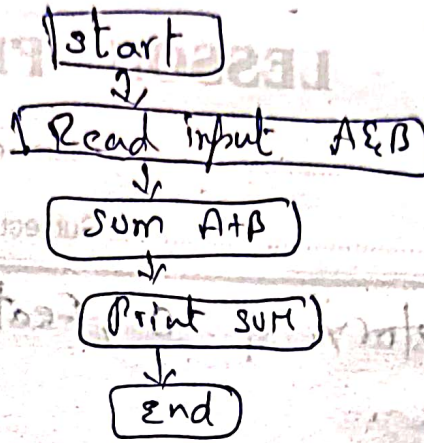 start
Read input A&B
Sum A+B
Print SUM
End